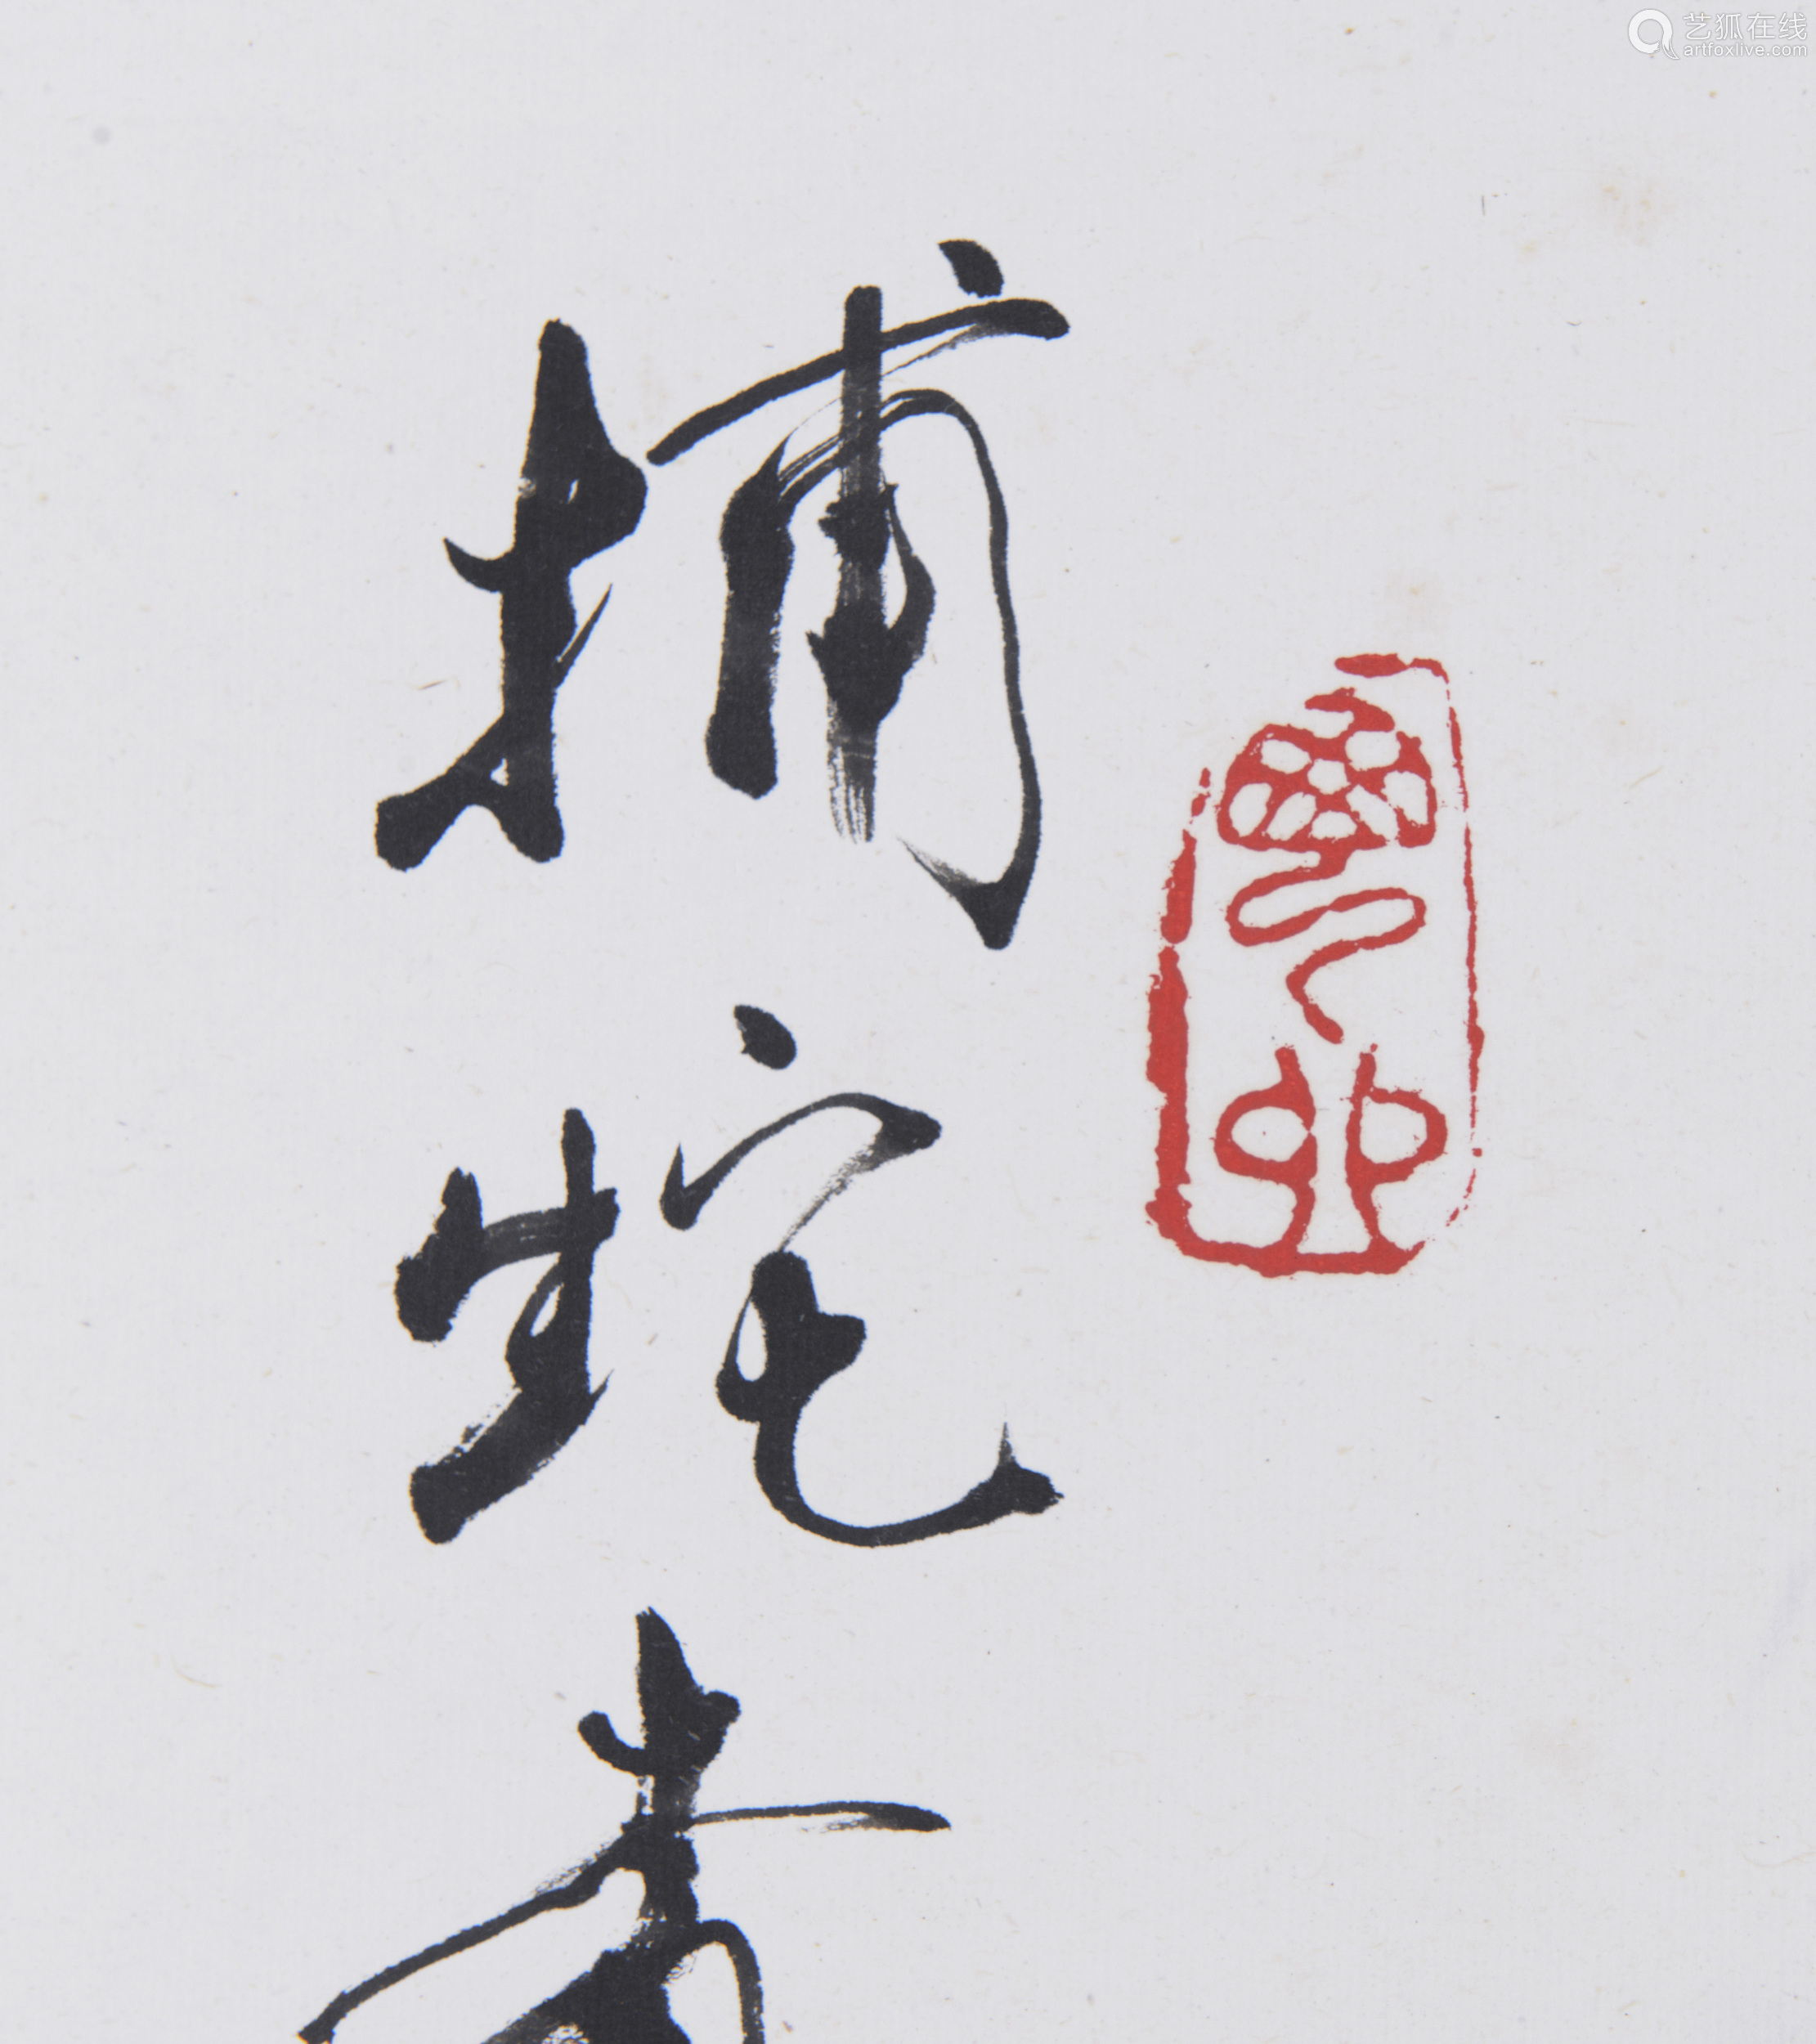 艺狐在线
artfoxlive.com
捕蛇者